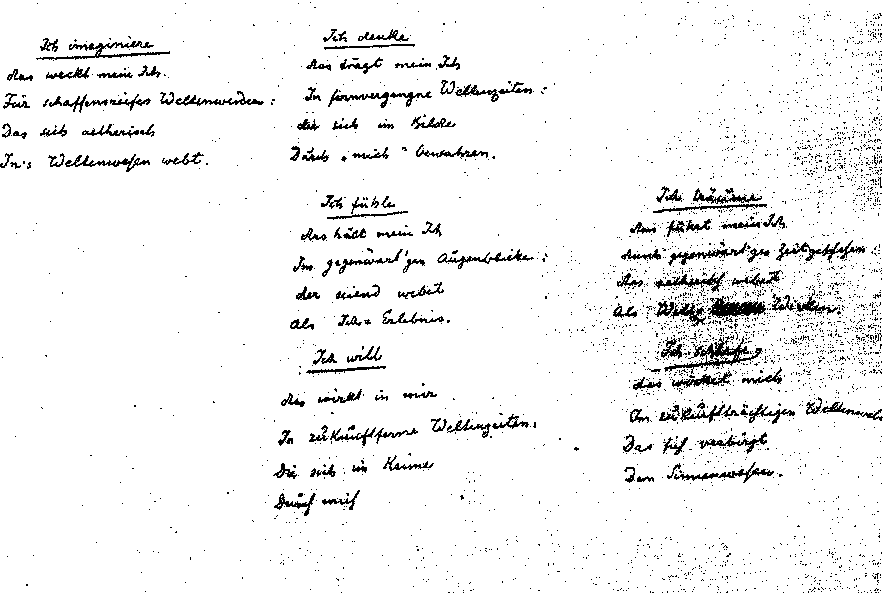 Ich imaginiere
das weckt mein Ich.
Für schaffensreifes Weltenwerden:
Das sich aetherisch
In's Weltenwesen webt.
Ich denke
das trägt mein Ich
In fernvergangne Weltenzeiten:
die sich im Bilde
Durch „mich" bewahren.
Ich fühle
das hält mein Ich
Im gegenwärt'gen Augenblicke:
der seiend webet
Als Ich-Erlebnis.
Ich will
das wirkt in mir
In zukunftferne Weltenzeiten:
Die sich im Keime
Durch mich
Ich träume
das führt mein Ich
durch gegenwärt'ges Zeitgeschehen:
das aetherisch webet
Als Werden.
Ich schlafe
das wecket mich
Im zukunftträchtigen
Das sich verbirgt
Dem Sinnenwesen.